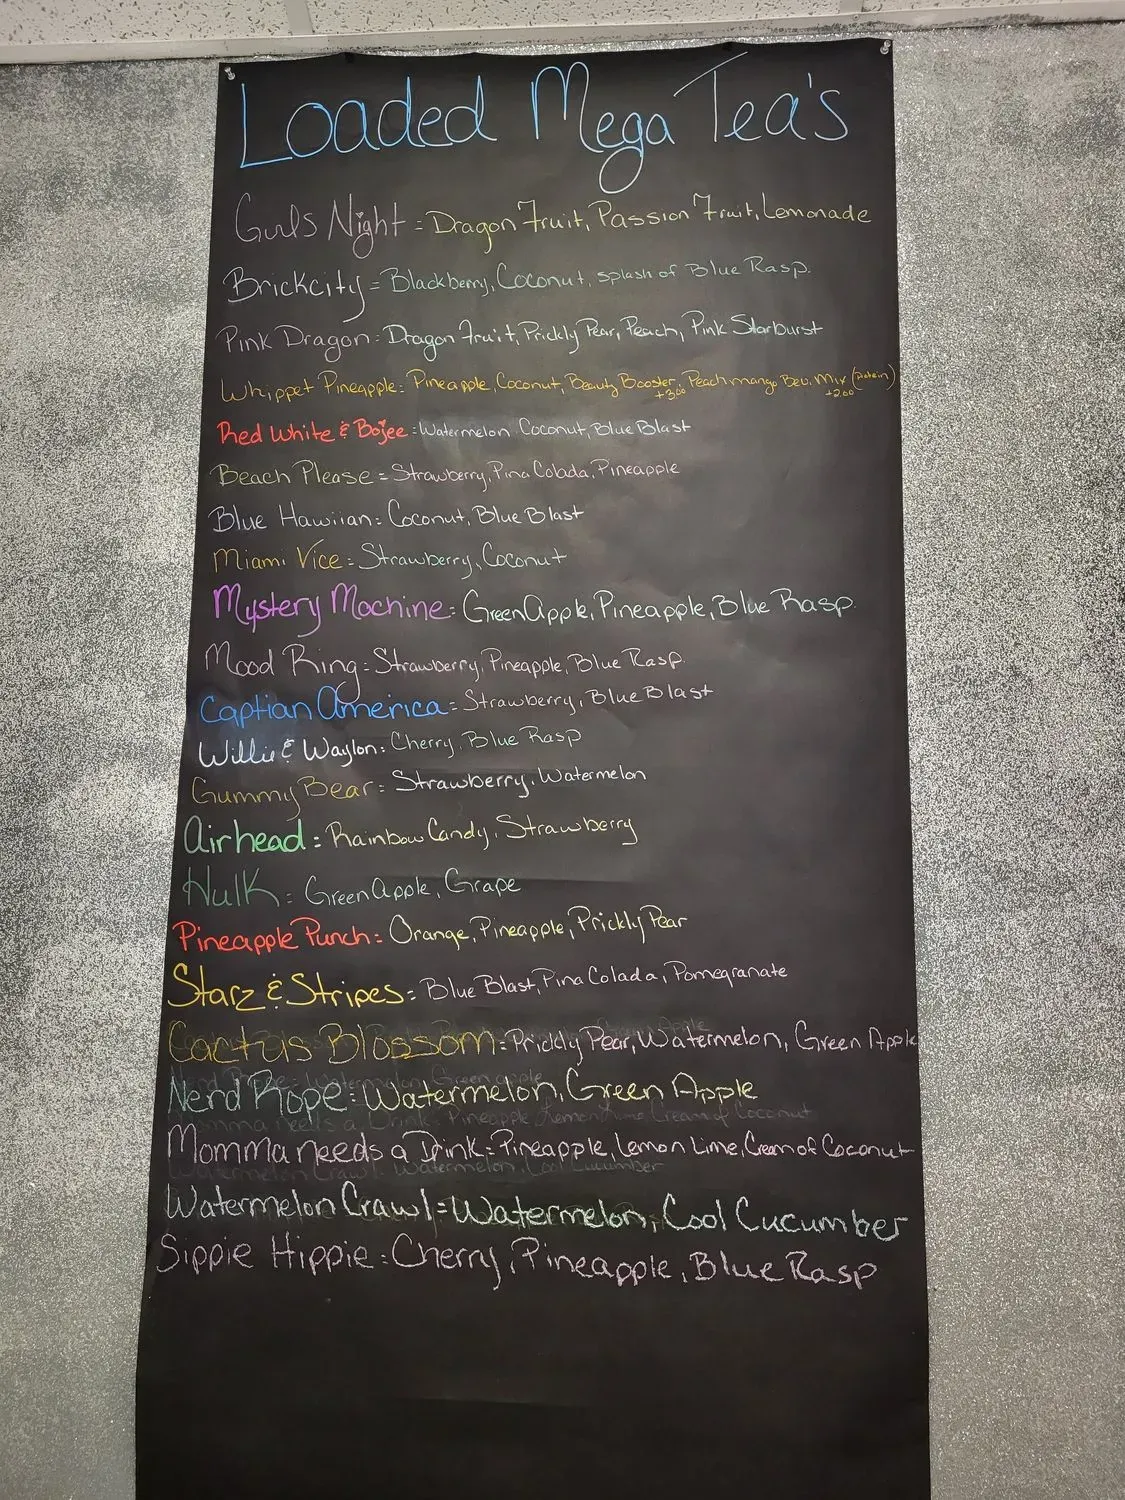 Loaded Mega Tea's
Girls Night = Dragon Fruit, Passion Fruit, Lemonade
Brickcity = Blackberry, Coconut, splash of Blue Rasp.
Pink Dragon = Dragon Fruit, Prickly Pear, Peach, Pink Starburst
Whippet Pineapple = Pineapple, Coconut, Beauty Booster, Peach mango Bev. Mix (protein)
+3.00 +2.00
Red White & Bojee = Watermelon Coconut, Blue Blast
Beach Please = Strawberry, Pina Colada, Pineapple
Blue Hawiian = Coconut, Blue Blast
Miami Vice = Strawberry, Coconut
Mystery Machine = Green Apple, Pineapple, Blue Rasp.
Mood Ring = Strawberry, Pineapple, Blue Rasp.
Captian America = Strawberry, Blue Blast
Willie & Waylon = Cherry, Blue Rasp
Gummy Bear = Strawberry, Watermelon
Airhead = Rainbow Candy, Strawberry
Hulk = Green Apple, Grape
Pineapple Punch = Orange, Pineapple, Prickly Pear
Starz & Stripes = Blue Blast, Pina Colada, Pomegranate
Cactus Blossom = Prickly Pear, Watermelon, Green Apple
Nerd Rope = Watermelon, Green Apple
Momma needs a Drink = Pineapple, Lemon Lime, Cream of Coconut
Watermelon Crawl = Watermelon, Cool Cucumber
Sippie Hippie = Cherry, Pineapple, Blue Rasp